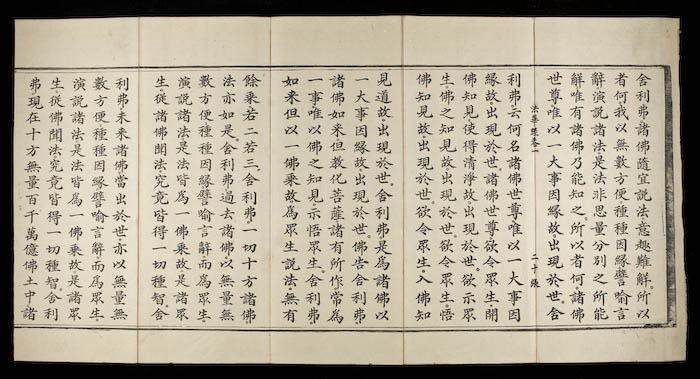 舍利弗諸佛隨宜說法意趣難解。所以
者何我以無數方便種種因緣譬喻言
辭演說諸法是法非思量分別之所能
解唯有諸佛乃能知之。所以者何。諸佛
世尊唯以一大事因緣故。出現於世。舍
法華經卷一 二十張
利弗云何名諸佛世尊唯以一大事因
緣故出現於世諸佛世尊欲令眾生開
佛知見使得清淨故出現於世。欲示眾
生佛之知見故。出現於世。欲令眾生。悟
佛知見故。出現於世。欲令眾生。入佛知
見道故。出現於世。舍利弗是爲諸佛以
一大事因緣故出現於世。佛告舍利弗
諸佛如來但教化菩薩諸有所作常爲
一事。唯以佛之知見。示悟眾生。舍利弗
如來但以一佛乘故爲眾生說法。無有
餘乘若二若三。舍利弗一切十方諸佛
法亦如是舍利弗過去諸佛。以無量無
數方便種種因緣譬喻言辭而爲眾生。
演說諸法是法皆爲一佛乘故是諸眾
生從諸佛聞法究竟皆得一切種智舍
利弗未來諸佛當出於世亦以無量無
數方便種種因緣譬喻言辭而爲眾生
演說諸法是法皆爲一佛乘故是諸眾
生。從佛聞法究竟皆得一切種智。舍利
弗現在十方無量百千萬億佛土中諸